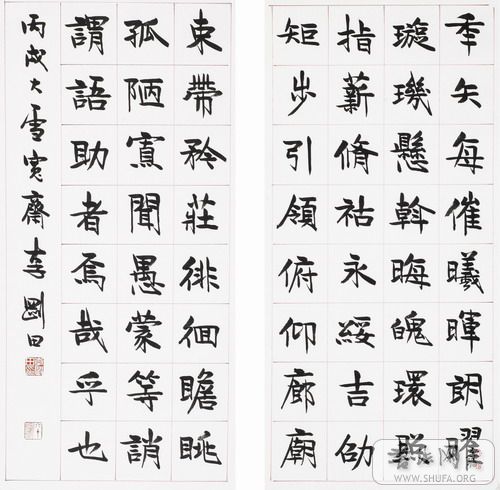 年矢每催曦暉朗曜
璇璣懸斡晦魄環照
指薪脩祜永綏吉劭
矩步引領俯仰廊廟
束帶矜莊徘徊瞻眺
孤陋寡聞愚蒙等誚
謂語助者焉哉乎也
丙戌大雪寬齋李剛田
WWW.SHUFA.ORG